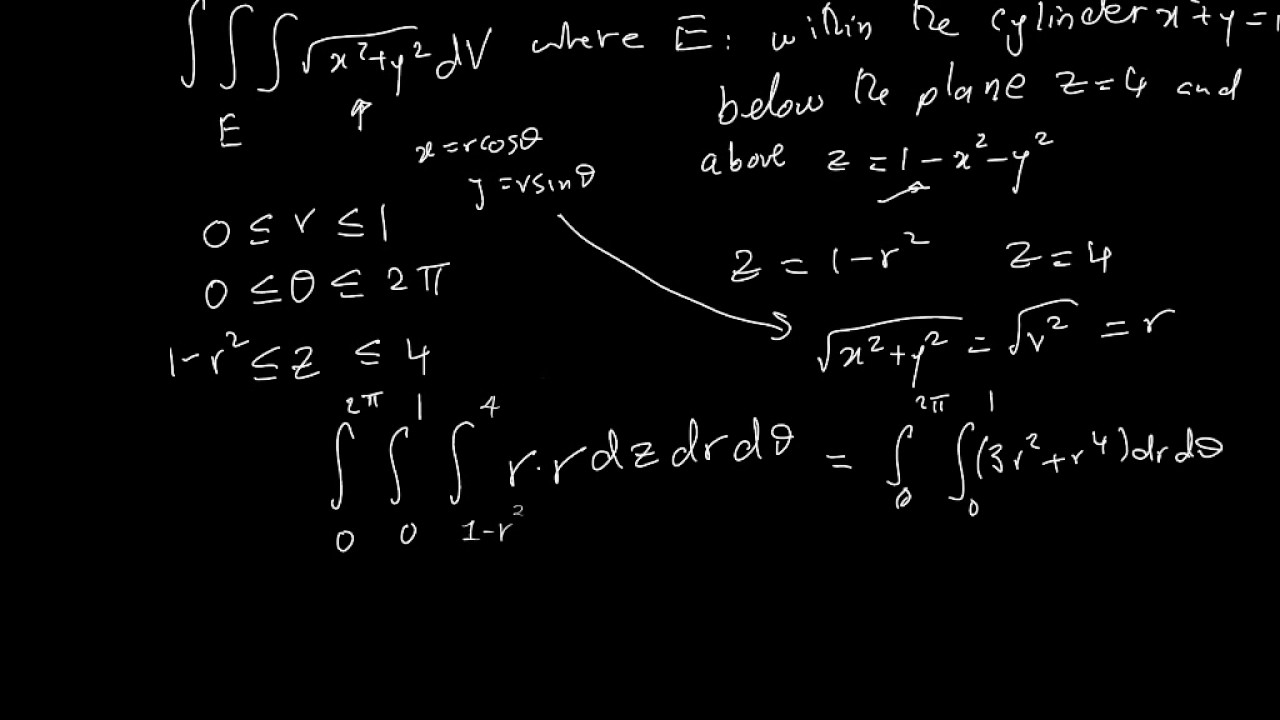 ∫∫∫ √x²+y² dV where E: within the cylinder x²+y²=
E below the plane z=4 and
x=rcosθ above z=1-x²-y²
y=rsinθ
0≤r≤1
0≤θ≤2π z=1-r² z=4
1-r²≤z≤4 √x²+y²=√r²=r
∫₀^2π ∫₀^1 ∫_1-r²^4 r·r dz dr dθ = ∫₀^2π ∫₀^1 (3r²+r⁴)drdθ